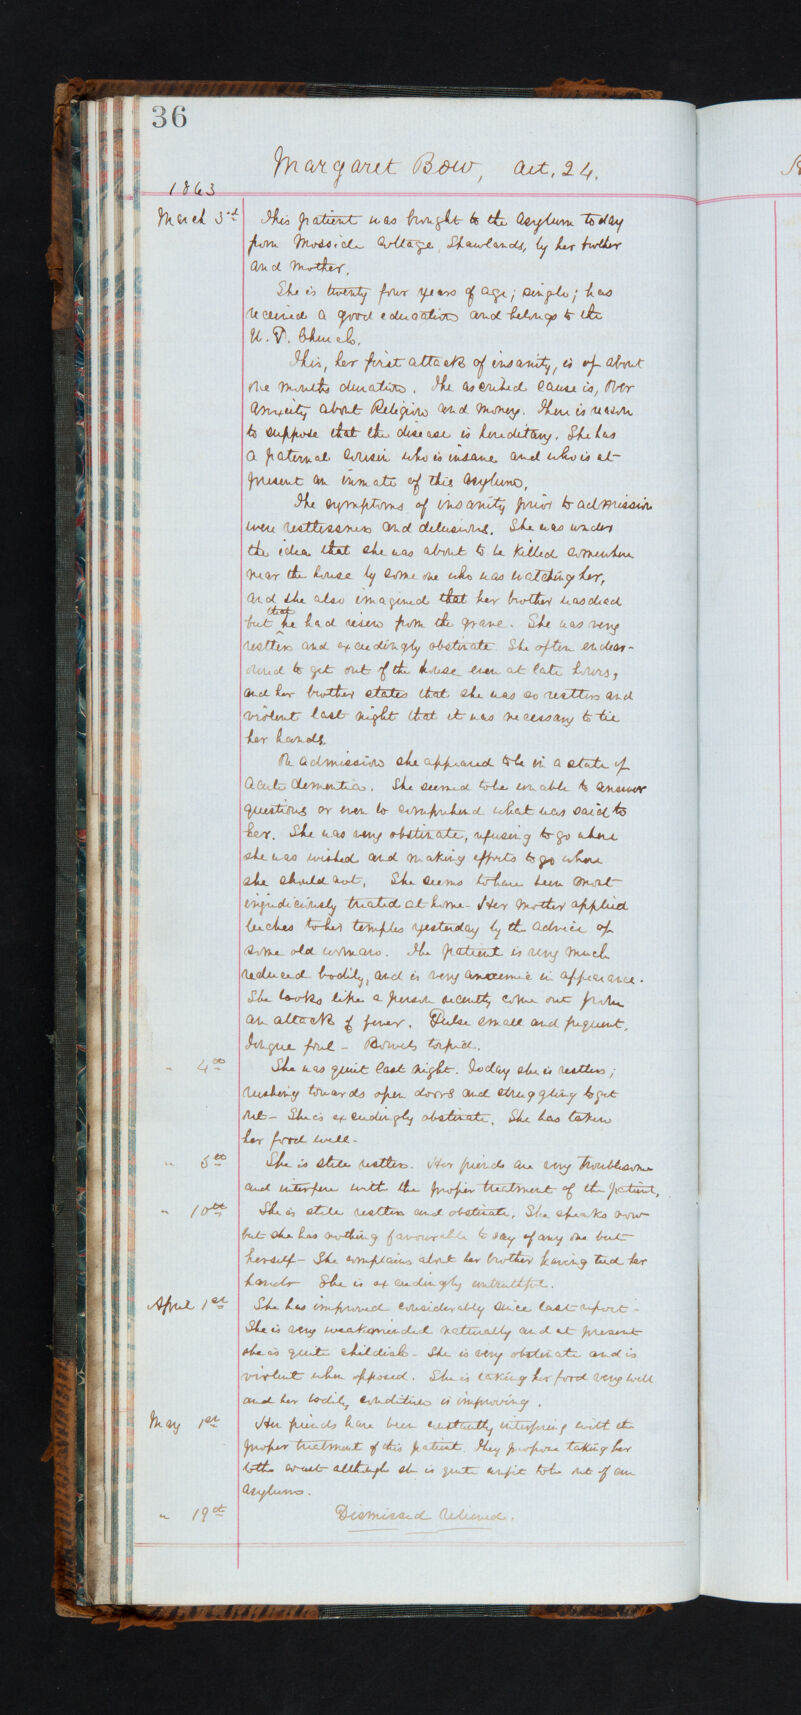 36
Margaret Bow, aet. 24.
1863
March 3rd This patient was brought to the asylum today
from Mosside Cottage, Shawlands, by her brother
and mother.
She is twenty four years of age; single; has
received a good education and belongs to the
U. P. Church.
This, her first attack of insanity, is of about
one months duration. The ascribed cause is, Over
anxiety about Religion and money. There is reason
to suppose that the disease is hereditary. She has
a paternal cousin who is insane and who is at
present an inmate of this asylum.
The symptoms of insanity prior to admission
were restlessness and delusions. She was under
the idea that she was about to be killed somewhere
near the house by some one who was watching her,
and she also imagined that her brother was dead
but that he had risen from the grave. She was very
restless and exceedingly obstinate. She often endeav-
oured to get out of the house even at late hours,
and her brother states that she was so restless and
violent last night that it was necessary to tie
her hands.
On admission she appeared to be in a state of
acute dementia. She seemed to be unable to answer
questions or even to comprehend what was said to
her. She was very obstinate, refusing to go where
she was wished and making efforts to go where
she should not. She seems to have been most
injudiciously treated at home - Her mother applied
leeches to her temples yesterday by the advice of
some old woman. The patient is very much
reduced bodily, and is very anaemic in appearance.
She looks like a person recently come out from
an attack of fever. Pulse small and frequent.
Tongue foul - Bowels torpid.
" 4th She was quiet last night. Today she is restless;
rushing towards open doors and struggling to get
out - She is exceedingly obstinate. She has taken
her food well -
" 5th She is still restless. Her friends are very troublesome
and interfere with the proper treatment of the patient.
" 10th She is still restless and obstinate. She speaks now
but she has nothing favourable to say of any one but
herself - She complains about her brother having tied her
hands She is exceedingly untruthful.
April 1st She has improved considerably since last report -
She is very weakminded naturally and at present
she is quite childish - She is very obstinate and is
violent when opposed. She is taking her food very well
and her bodily condition is improving.
May 1st Her friends have been constantly interfering with the
proper treatment of this patient. They propose taking her
to the coast although she is quite unfit to be out of an
asylum.
" 19th Dismissed relieved.